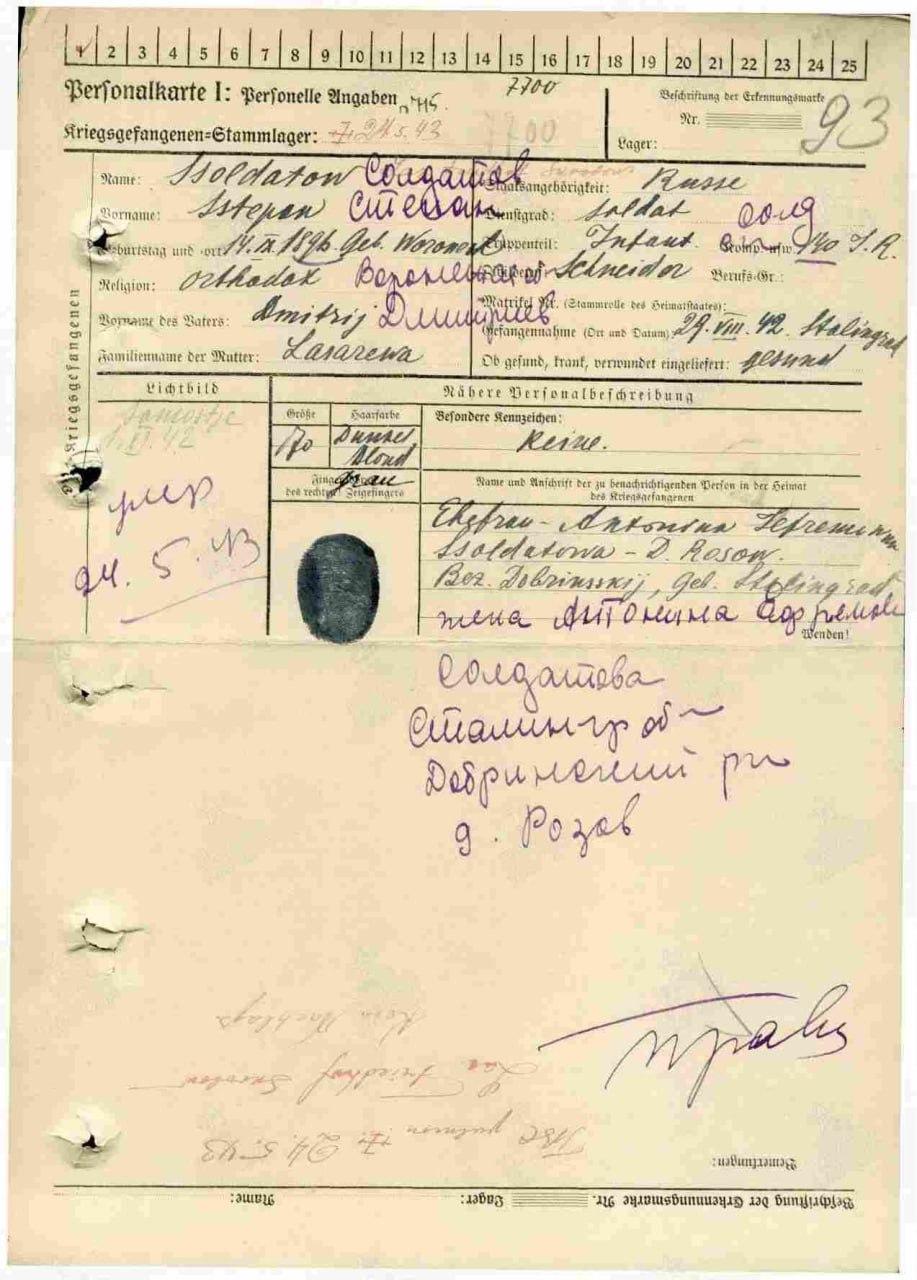 1 2 3 4 5 6 7 8 9 10 11 12 13 14 15 16 17 18 19 20 21 22 23 24 25
7700
Personalkarte I: Personelle Angaben
Beschriftung der Erkennungsmarke
Nr. 93
Kriegsgefangenen=Stammlager: 24.5.43 7700
Lager:
Name: Ssoldatow Солдатов
Staatsangehörigkeit: Russe
Vorname: Sstepan Степан
Dienstgrad: Soldat солд
Geburtstag und -ort 14. IX 1896 Geb. Woronesh
Truppenteil: Infant. Komp. usw. 140 I.R.
Religion: Orthodox
Schneider Berufs-Gr.:
Matrikel Nr. (Stammrolle des Heimatstaates):
Vorname des Vaters: Dmitrij Дмитриев
Gefangennahme (Ort und Datum) 29. VIII. 42. Stalingrad
Familienname der Mutter: Lasarewa
Ob gesund, krank, verwundet eingeliefert: gesund
Kriegsgefangenen
Lichtbild
Nähere Personalbeschreibung
Größe
Haarfarbe
Besondere Kennzeichen:
170
Dunkel
blond
Keine.
grau
des rechten Zeigefingers
Name und Anschrift der zu benachrichtigenden Person in der Heimat
des Kriegsgefangenen
XI. 42
умер
24. 5. 43
Ehefrau - Antonina
Ssoldatowa - D. Rosow.
Bez. Dobrinsskij, Geb. Stalingrad
жена Антонина Ефремов
Wenden!
Солдатова
Сталингр об
Добринский рн
д. Розов
Kein Nachlass
Friedhof
24. 5. 43
Bemerkungen:
Beschriftung der Erkennungsmarke Nr. Lager: Name: